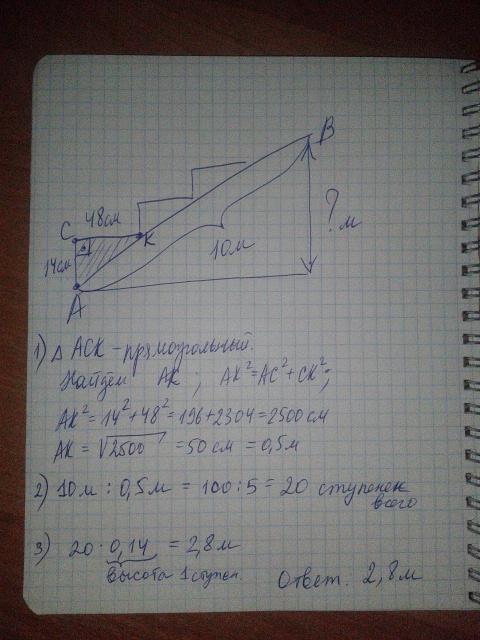 B
48см
C
K
? м
14см
10м
A
1) Δ ACK - прямоугольный.
Найдём AK ; AK²=AC²+CK²;
AK²=14²+48²=196+2304=2500см
AK = √2500 = 50 см = 0,5м
2) 10м : 0,5м = 100 : 5 = 20 ступенек
всего
3) 20 · 0,14 = 2,8м
высота 1 ступен.
Ответ. 2,8м